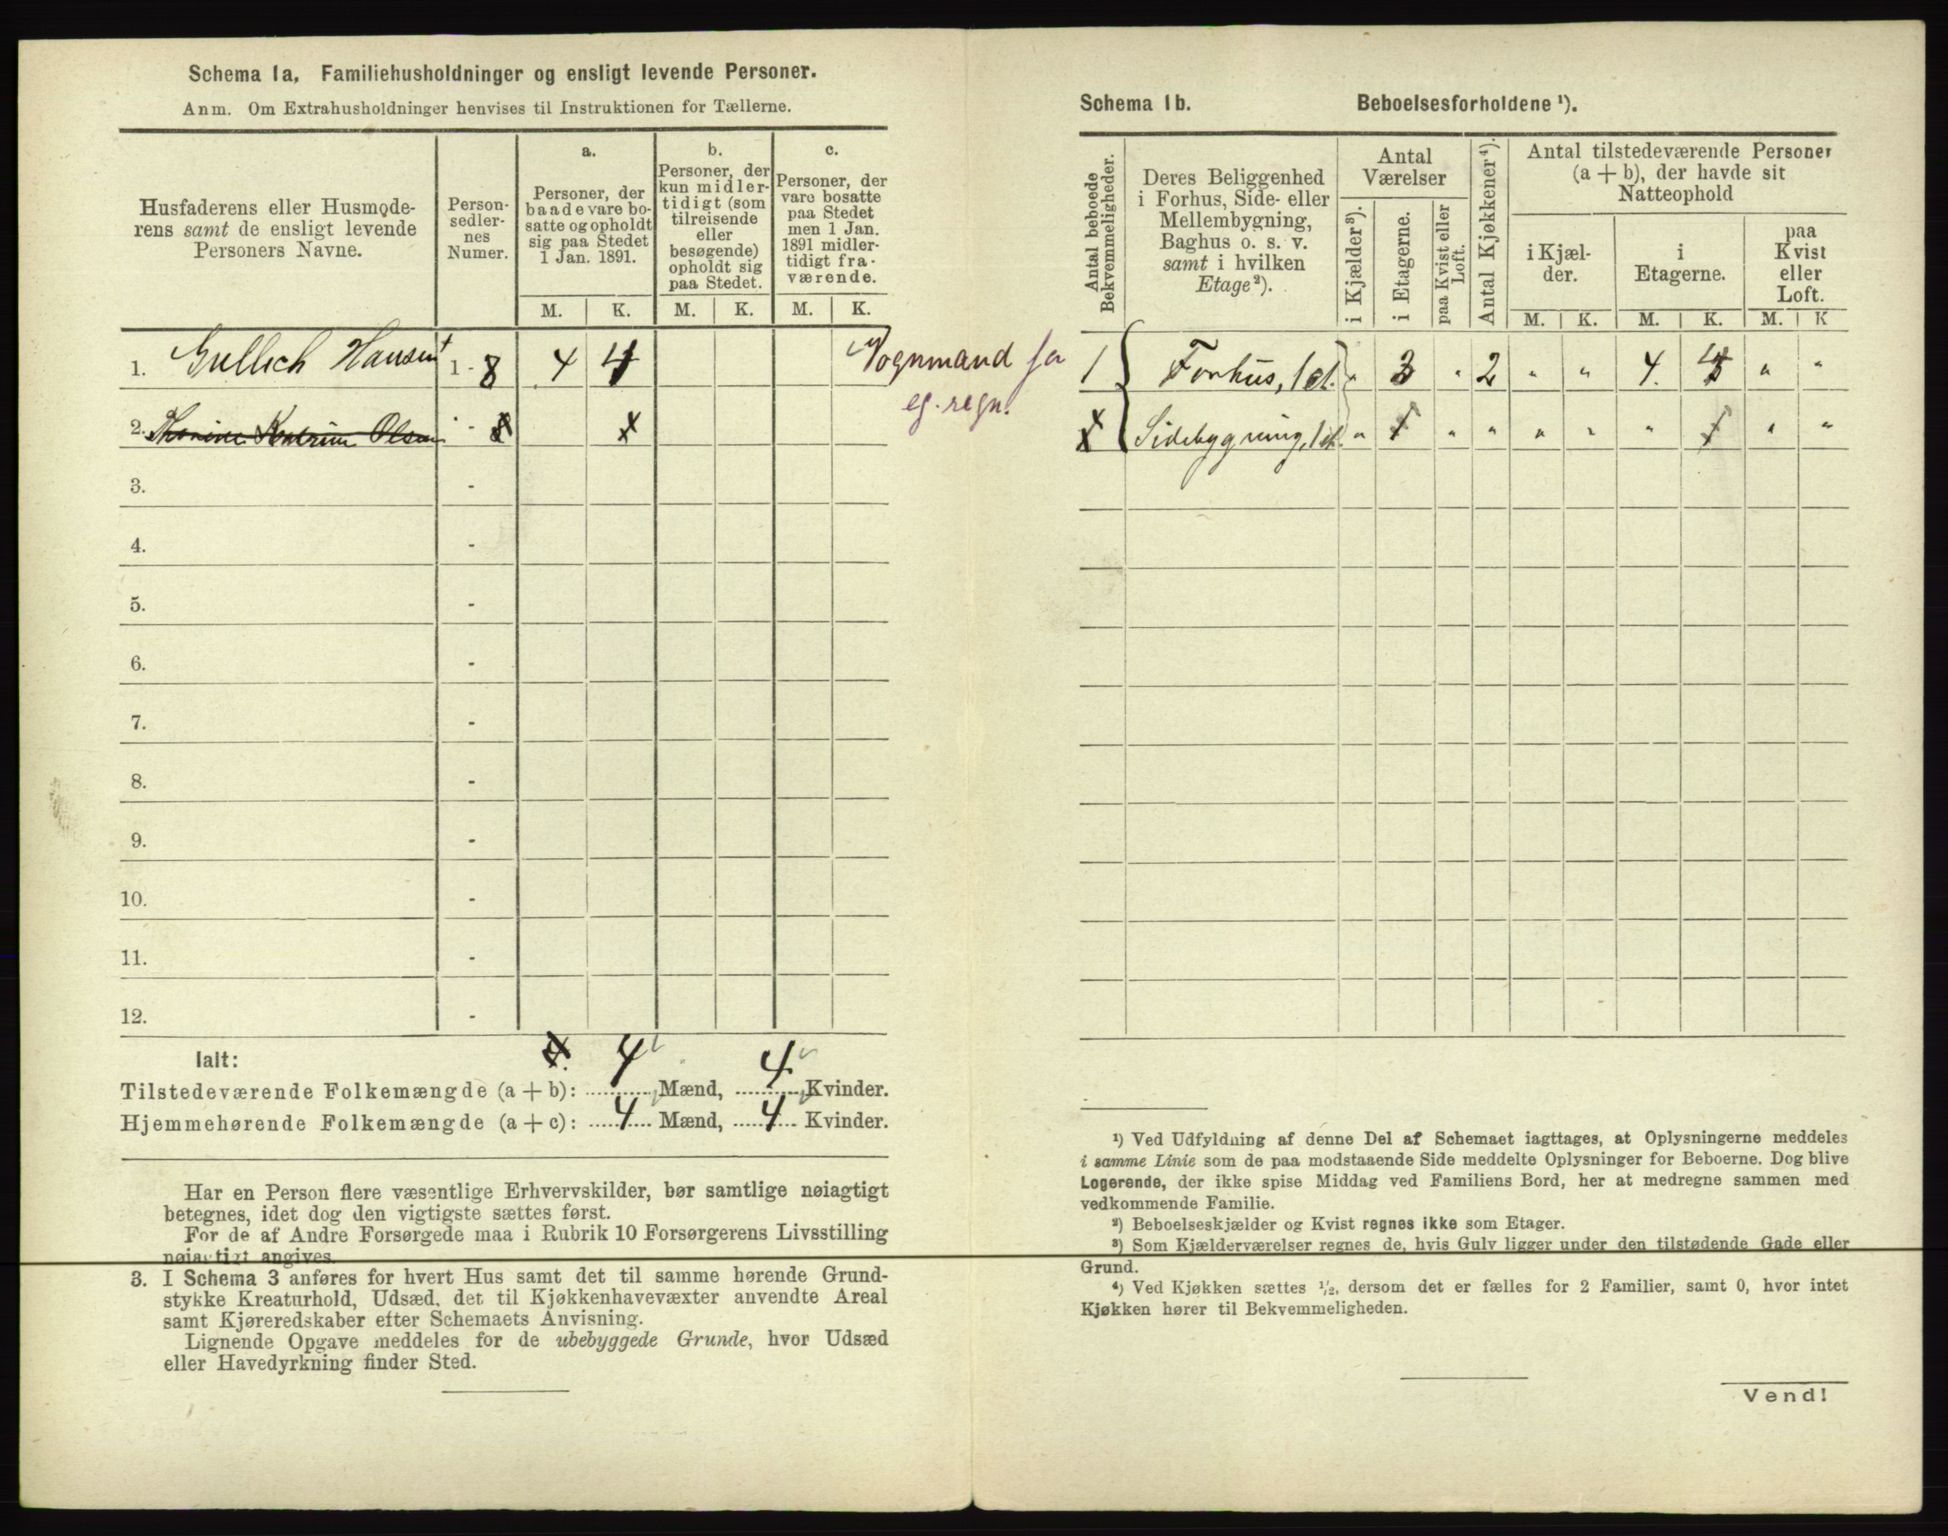 Schema 1a. Familiehusholdninger og ensligt levende Personer.
Anm. Om Extrahusholdninger henvises til Instruktionen for Tællerne.
Husfaderens eller Husmode-
rens samt de ensligt levende
Personers Navne.
Person-
sedler-
nes
Numer.
a.
Personer, der
baade vare bo-
satte og opholdt
sig paa Stedet
1 Jan. 1891.
b.
Personer, der
kun midler-
tidigt (som
tilreisende
eller
besøgende)
opholdt sig
paa Stedet.
c.
Personer, der
vare bosatte
paa Stedet
men 1 Jan.
1891 midler-
tidigt fra-
værende.
M. K. M. K. M. K.
1. Gullich Hansen 1 - 8 4 4 Vognmand for
eg. regn.
2. Thorine Katrine Olsen - x x
3. -
4. -
5. -
6. -
7. -
8. -
9. -
10. -
11. -
12. -
Ialt:
Tilstedeværende Folkemængde (a + b): 4 Mænd, 4 Kvinder.
Hjemmehørende Folkemængde (a + c): 4 Mænd, 4 Kvinder.
Har en Person flere væsentlige Erhvervskilder, bør samtlige nøiagtigt
betegnes, idet dog den vigtigste sættes først.
For de af Andre Forsørgede maa i Rubrik 10 Forsørgerens Livsstilling
nøiagtigt angives.
3. I Schema 3 anføres for hvert Hus samt det til samme hørende Grund-
stykke Kreaturhold, Udsæd, det til Kjøkkenhavevæxter anvendte Areal
samt Kjøreredskaber efter Schemaets Anvisning.
Lignende Opgave meddeles for de ubebyggede Grunde, hvor Udsæd
eller Havedyrkning finder Sted.
Schema 1b. Beboelsesforholdene ¹).
Antal beboede
Bekvemmeligheder.
Deres Beliggenhed
i Forhus, Side- eller
Mellembygning,
Baghus o. s. v.
samt i hvilken
Etage ²).
Antal
Værelser
i Kjælder ³).
i Etagerne.
paa Kvist eller
Loft.
Antal Kjøkkener ⁴).
Antal tilstedeværende Personer
(a + b), der havde sit
Natteophold
i Kjæl-
der.
i
Etagerne.
paa
Kvist
eller
Loft.
M. K. M. K. M. K
1 Forhus, 1 et. " 3 " 2 " " 4. 4 " "
x Sidebygning, 1 et. " 1 " " " " " 1 " "
¹) Ved Udfyldning af denne Del af Schemaet iagttages, at Oplysningerne meddeles
i samme Linie som de paa modstaaende Side meddelte Oplysninger for Beboerne. Dog blive
Logerende, der ikke spise Middag ved Familiens Bord, her at medregne sammen med
vedkommende Familie.
²) Beboelseskjælder og Kvist regnes ikke som Etager.
³) Som Kjælderværelser regnes de, hvis Gulv ligger under den tilstødende Gade eller
Grund.
⁴) Ved Kjøkken sættes ½, dersom det er fælles for 2 Familier, samt 0, hvor intet
Kjøkken hører til Bekvemmeligheden.
Vend!